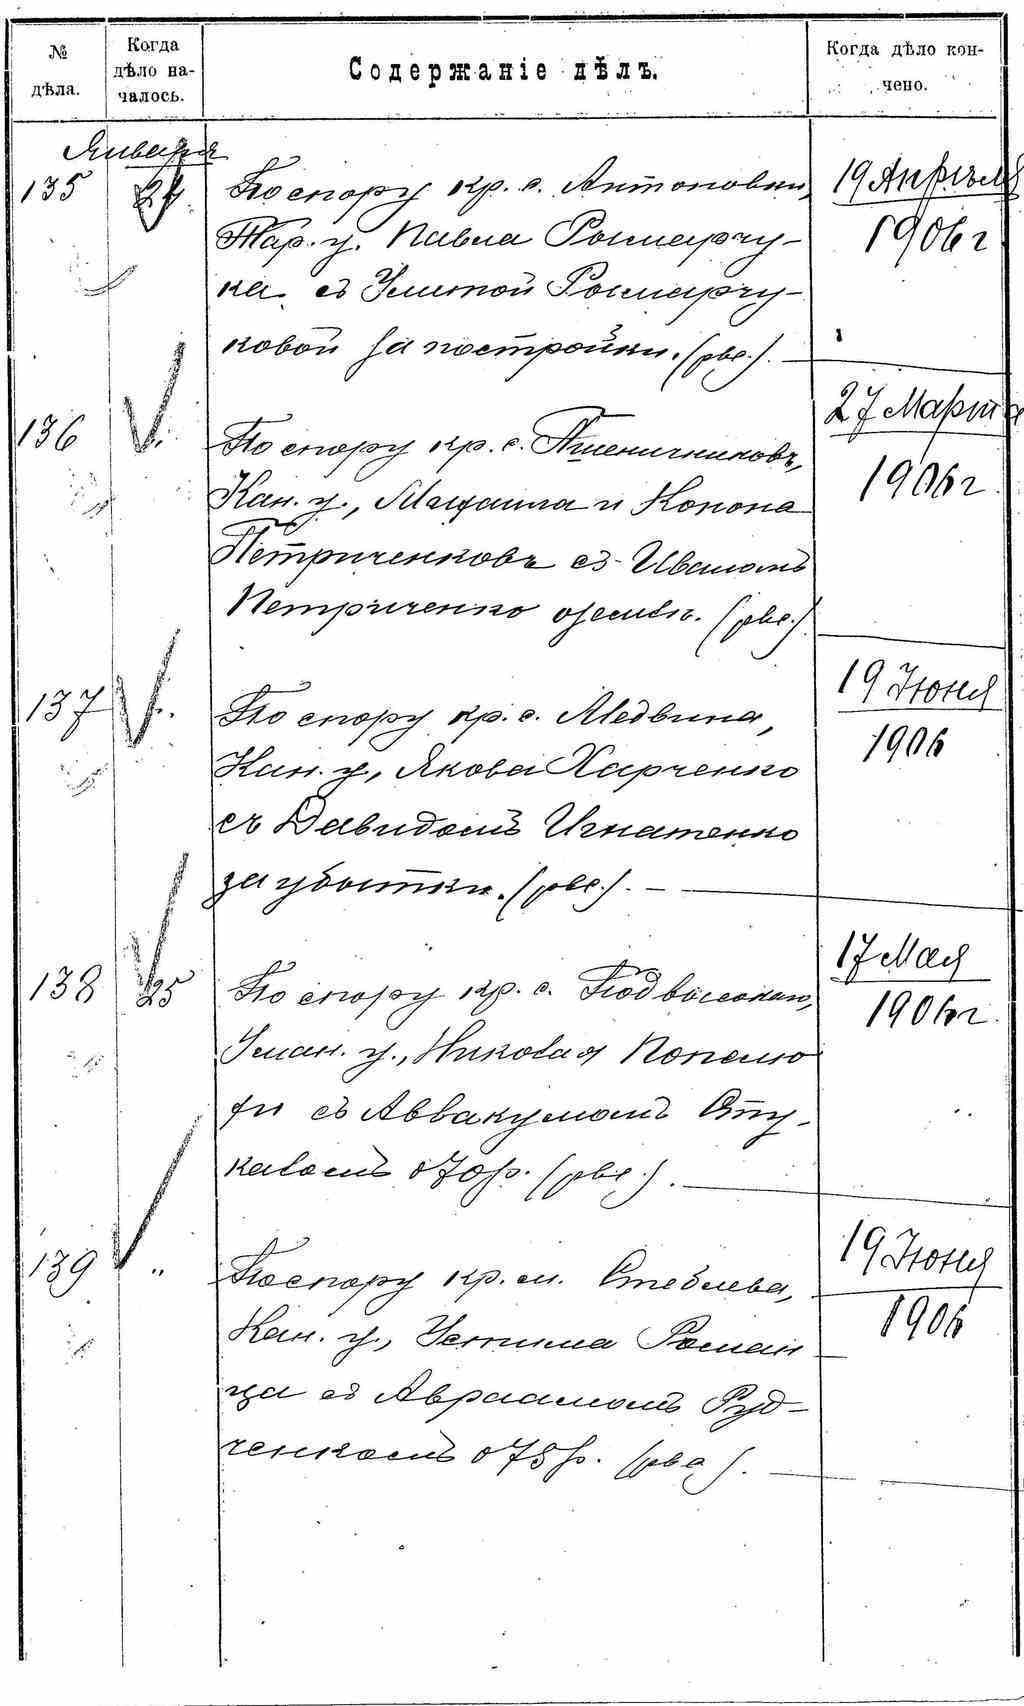 № дѣла.
Когда дѣло на-
чалось.
Содержаніе дѣлъ.
Когда дѣло кон-
чено.
Января
135 24 По спору кр. с. Антоновки, 19 Апрѣля
Тар. у. Павла 1906 г
ка съ Улитой
ковой за постройки. (рвс.).
136 По спору кр. с. Пшеничниковъ, 27 Марта
Кан. у., и Конона 1906 г
Петриченковъ съ Иваномъ
Петриченко о землѣ. (рвс.)
137 По спору кр. с. Медвина, 19 Июня
Кан. у., Якова Харченко 1906
съ Давидомъ Игнатенко
за убытки. (рвс.).
138 25 По спору кр. с. Подвысокаго, 17 Мая
Уман. у., Николая Попелю 1906 г.
хи съ Аввакумомъ Сту-
каломъ о 70 р. (рвс.).
139 " По спору кр. м. Стеблева, 19 Июня
Кан. у., Устима Роман 1906
ца съ Авраамомъ Руд-
ченкомъ о 75 р. (рвс).